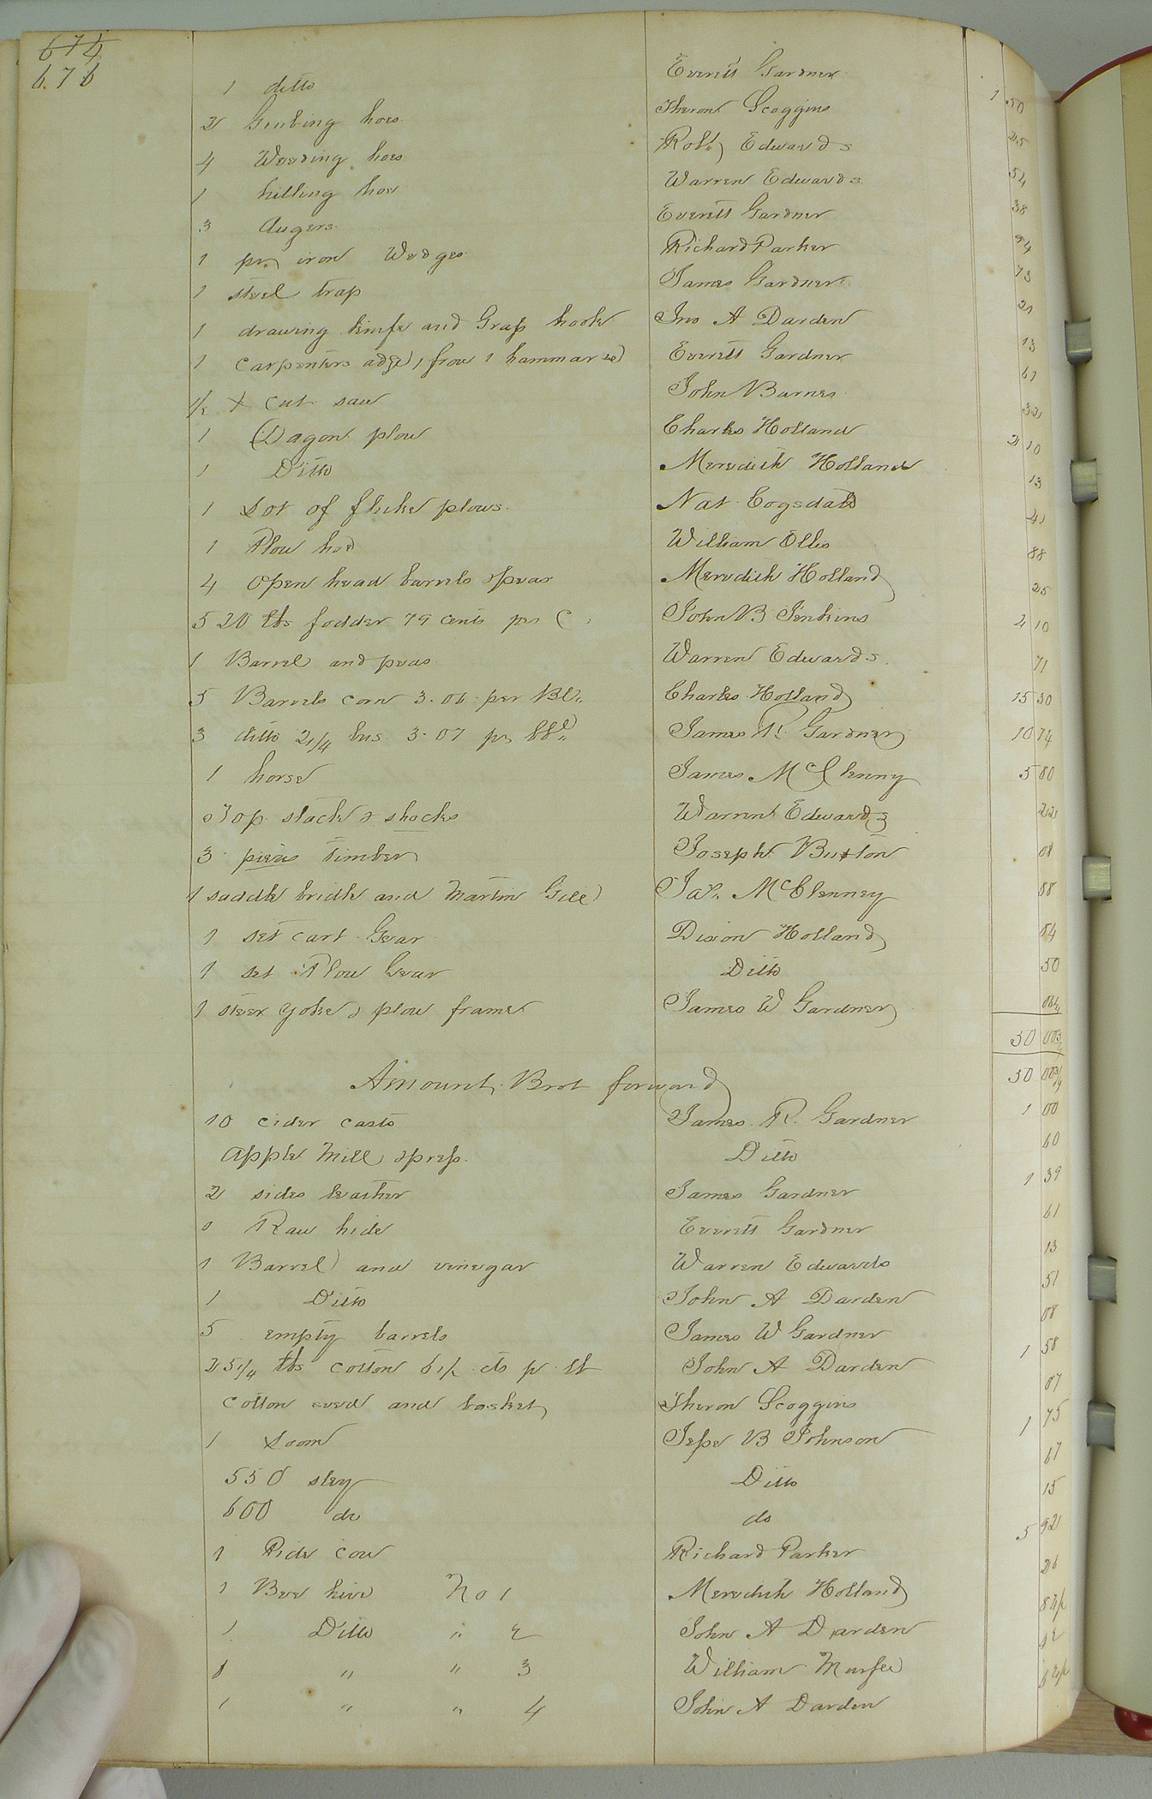 674
676
1 ditto Everitt Gardner 1 50
2 Grubing hoes Theron Scoggins 25
4 Weeding hoes Robt Edwards 54
1 hilling hoe Warren Edwards 38
3 Augers Everitt Gardner 94
1 pr iron Wedges Richard Parker 73
1 steel trap James Gardner 21
1 drawing knife and Grass hook Jno A Darden 13
1 carpenters adze 1 frow 1 hammar Everitt Gardner 61
1/2 X cut saw John Barnes
1 Dagon plow Charles Holland 2 10
1 Ditto Meredith Holland 13
1 Lot of fluke plows Nat Cogsdale 41
1 Plow hoe William Ellis 88
4 open head barrels & peas Meredith Holland 25
520 lbs fodder 79 cents pr C John B Jenkins 4 10
1 Barrel and peas Warren Edwards 71
5 Barrels corn 3.06 per Bl Charles Holland 15 30
3 ditto 2 1/4 bus 3.07 pr bbl James R Gardner 10 74
1 horse James McClenny 5 80
Top stack & shocks Warren Edwards 22
3 pieces Timber Joseph Buxton 08
1 saddle bridle and Martin Gill Jas McClenney 88
1 set cart Gear Dixon Holland 54
1 set Plow Gear Ditto 50
1 steer yoke & plow frame James W Gardner 06 1/4
50
Amount Brot forward 50
10 cider casts James R. Gardner 1 00
Apple Mill & press Ditto 60
2 sides leather James Gardner 1 39
Raw hide Everitt Gardner 61
1 Barrel and vinegar Warren Edwards 13
1 Ditto John A Darden 51
5 empty barrels James W Gardner 08
25 1/4 lbs cotton 6 1/4 cts pr lb John A Darden 1 58
cotton seed and basket Theron Scoggins 07
1 Loom Jesse B Johnson 1 75
550 sley Ditto 67
600 do do 15
1 Pide cow Richard Parker 5 92
1 Bee hive No 1 Meredith Holland 26
1 Ditto " 2 John A Darden
1 " " 3 William Murfee
1 " " 4 John A Darden